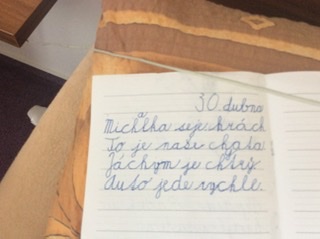 30. dubna
Michalka seje hrách
To je naše chata
Jáchym je chytrý
Auto jede rychle.